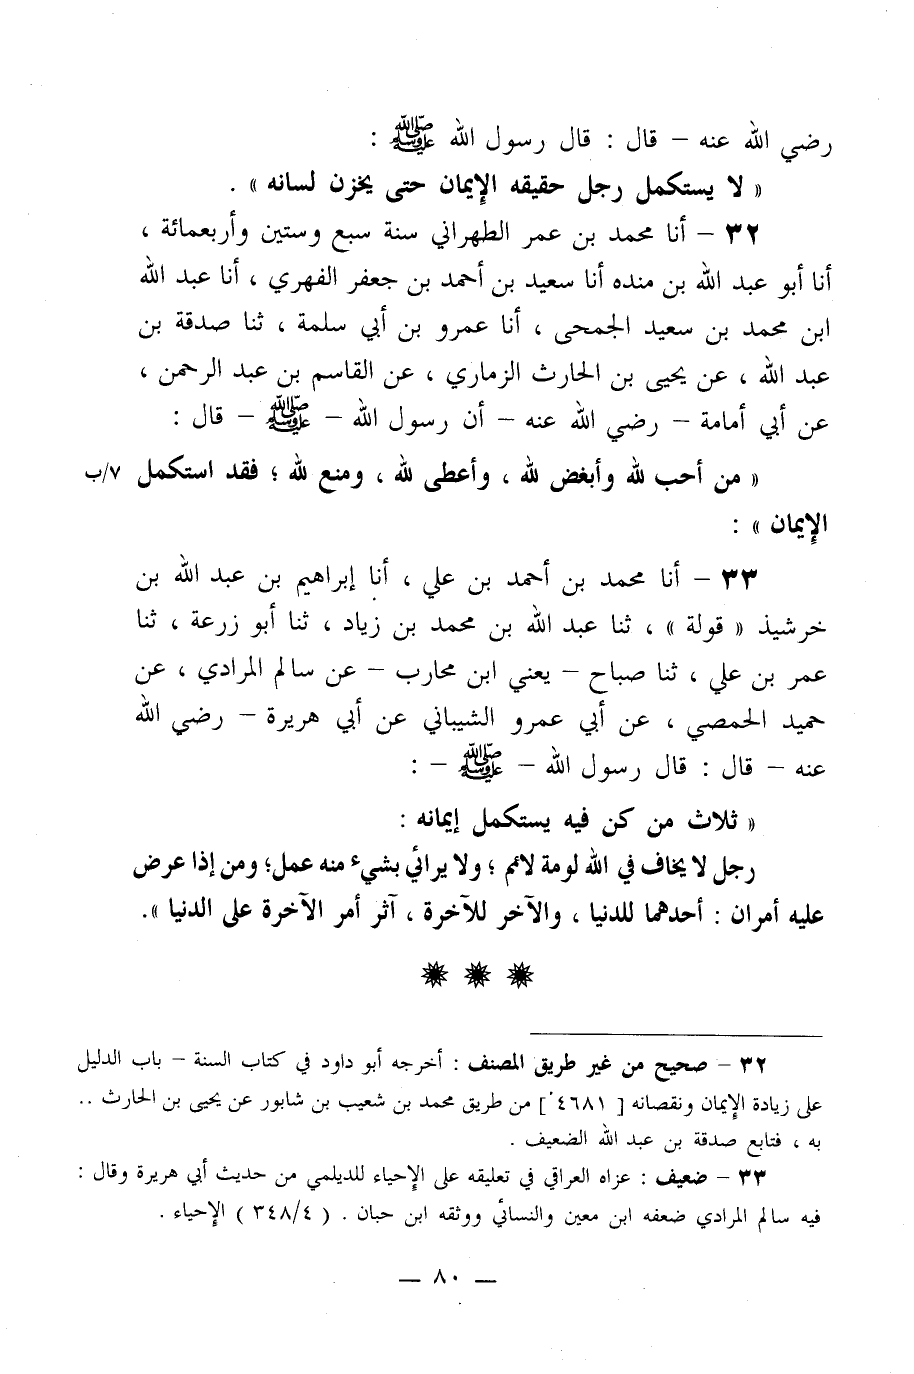 رضي الله عنه – قال : قال رسول الله ﷺ :
« لا يستكمل رجل حقيقه الإيمان حتى يخزن لسانه » .
٣٢ – أنا محمد بن عمر الطهراني سنة سبع وستين وأربعمائة ،
أنا أبو عبد الله بن منده أنا سعيد بن أحمد بن جعفر الفهري ، أنا عبد الله
ابن محمد بن سعيد الجمحى ، أنا عمرو بن أبي سلمة ، ثنا صدقة بن
عبد الله ، عن يحيى بن الحارث الزماري ، عن القاسم بن عبد الرحمن ،
عن أبي أمامة – رضي الله عنه – أن رسول الله – ﷺ – قال :
« من أحب لله وأبغض لله ، وأعطى لله ، ومنع لله ؛ فقد استكمل ٧/ب
الإيمان » :
٣٣ – أنا محمد بن أحمد بن علي ، أنا إبراهيم بن عبد الله بن
خرشيذ « قولة » ، ثنا عبد الله بن محمد بن زياد ، ثنا أبو زرعة ، ثنا
عمر بن علي ، ثنا صباح – يعني ابن محارب – عن سالم المرادي ، عن
حميد الحمصي ، عن أبي عمرو الشيباني عن أبي هريرة – رضي الله
عنه – قال : قال رسول الله – ﷺ – :
« ثلاث من كن فيه يستكمل إيمانه :
رجل لا يخاف في الله لومة لائم ؛ ولا يرائي بشيء منه عمل؛ ومن إذا عرض
عليه أمران : أحدهما للدنيا ، والآخر للآخرة ، آثر أمر الآخرة على الدنيا ».
٣٢ – صحيح من غير طريق المصنف : أخرجه أبو داود في كتاب السنة – باب الدليل
على زيادة الإيمان ونقصانه [ ٤٦٨١ ] من طريق محمد بن شعيب بن شابور عن يحيى بن الحارث ..
به ، فتابع صدقة بن عبد الله الضعيف .
٣٣ – ضعيف : عزاه العراقي في تعليقه على الإحياء للديلمي من حديث أبي هريرة وقال :
فيه سالم المرادي ضعفه ابن معين والنسائي ووثقه ابن حبان . ( ٣٤٨/٤ ) الإحياء .
— ٨٠ —